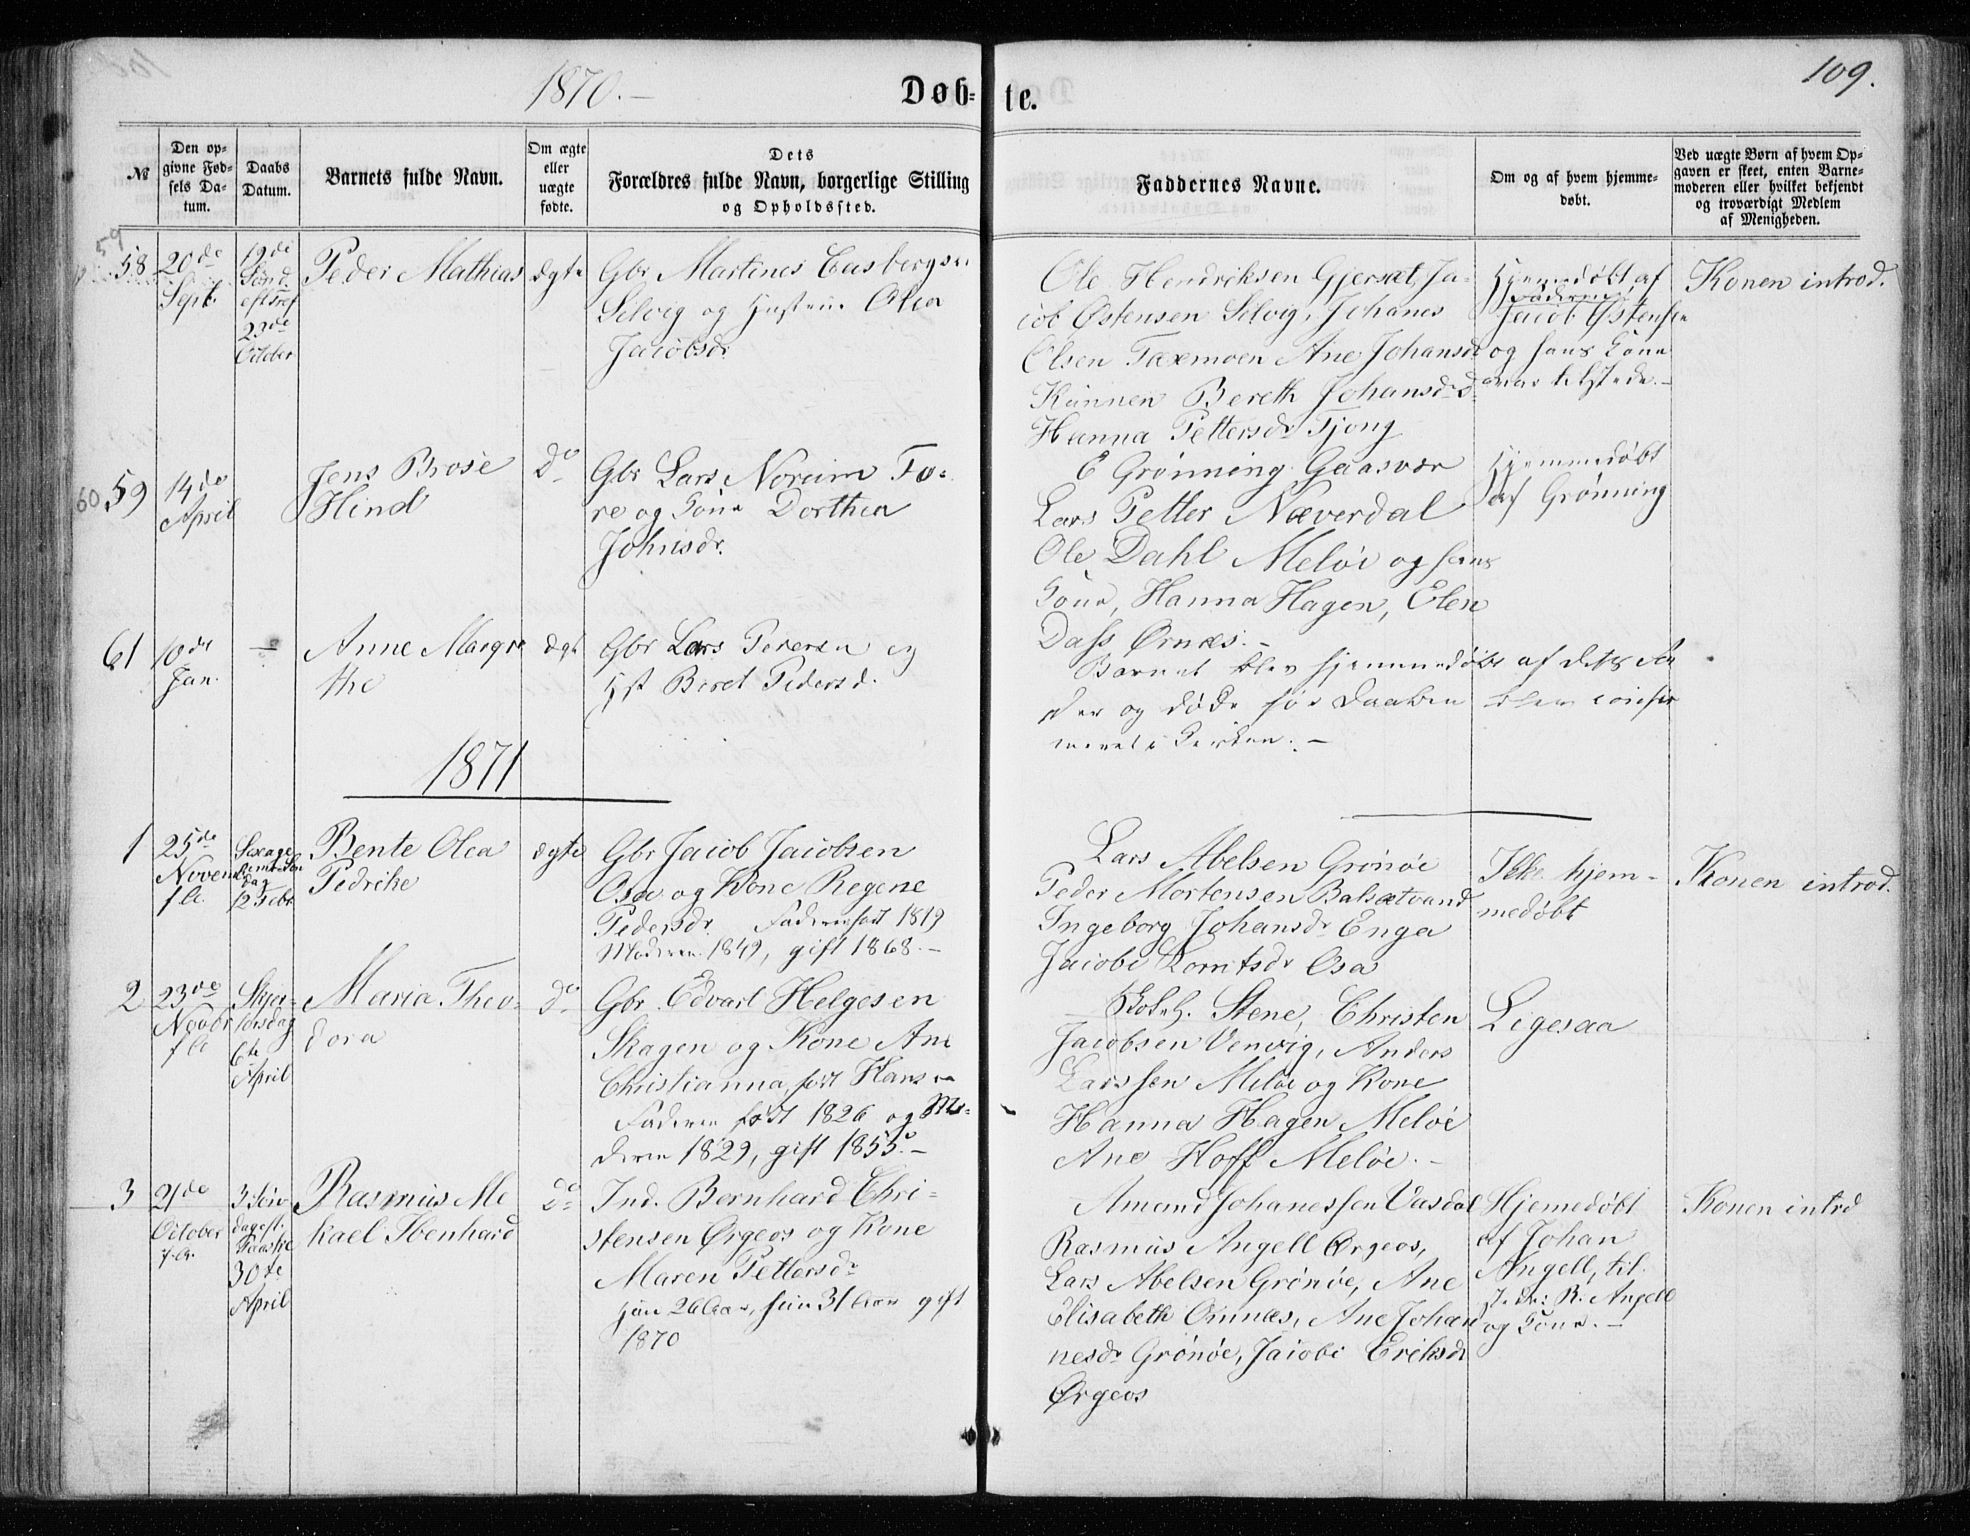 1870.–
Døb-
te.
109.
№
Den op-
givne Fød-
sels Da-
tum.
Daabs
Datum.
Barnets fulde Navn.
Om ægte
eller
uægte
fødte.
Dets
Forældres fulde Navn, borgerlige Stilling
og Opholdssted.
Faddernes Navne.
Om og af hvem hjemme-
døbt.
Ved uægte Børn af hvem Op-
gaven er skeet, enten Barne-
moderen eller hvilket bekjendt
og troværdigt Medlem
af Menigheden.
59
58
20de
Sept.
19de
Sønd
eft Tref
23de
October
Peder Mathias
ægte
Gbr Martines
Selvig og Hustru Olea
Jacobsdr
Ole Hendriksen Gjersæt, Ja-
cob Østensen Selvig, Johanes
Olsen Taxmoen Ane Johansdr
Kunnen Bereth Johansdr
Hanna Pettersdr Tjong
Hjemmedøbt af
Faderen,
Jacob Østensen
og hans Kone
var tilstede.–
Konen introd.
60
59
14de
April
Jens Brose
Hind
Do
Gbr Lars Noreim Fo-
re og Kone Dorthea
Johnsdr.
E Grønning Gaasvær
Lars Petter Næverdal
Ole Dahl Meløe og hans
Kone, Hanna Hagen, Elen
Dass Ørnæs.–
Hjemmedøbt
af Grønning
61
10de
Jan.
–
Anne Margre
the
ægte
Gbr Lars Pedersen og
Hst Beret Pedersd.
Barnet blev hjemmedøbt af dets Fa
der og døde før Daaben blev confir
meret i Kirken.–
1871
1
25de
Novem
f.A.
Sexage
sima Søn
dag
12 Febr
Bente Olea
Pedrike
ægte
Gbr Jacob Jacobsen
Osa og Kone Regene
Pedersdr. Faderen født 1819
Moderen 1849, gift 1868.–
Lars Abelsen Grønøe
Peder Mortensen Balsætvand
Ingeborg Johansdr Enga
Jacobe Lorntsdr Osa
Ikke hjem-
medøbt
Konen introd.
2
23de
Novbr
f.A.
Skjær-
torsdag
6te
April
Maria Theo-
dora
Do
Gbr. Edvart Helgesen
Skagen og Kone Ane
Christianna, født Hansen
Faderen født 1826 og Mo-
deren 1829, gift 1855.–
Stene, Christen
Jacobsen Venvig, Anders
Larssen Meløe og Kone
Hanna Hagen Meløe
Ane Hoff Meløe.–
Ligesaa
3
21de
October
f.A.
3 Søn
dag eft.
Paaske
30te
April
Rasmus Me
kael Ibenhard
Do
Ind. Bernhard Chri-
stensen Ørgeos og Kone
Maren Pettersdr
Han 26 Aar, hun 31 Aar gift
1870
Amand Johanessen Vasdal
Rasmus Angell Ørgeos,
Lars Abelsen Grønøe, Ane
Elisabeth Ornæs, Ane Johan
nesdr Grønøe, Jacobe Eriksdr
Ørgeos
Hjemedøbt
af Johan
Angell, til
R. Angell
og Kone.–
Konen introd